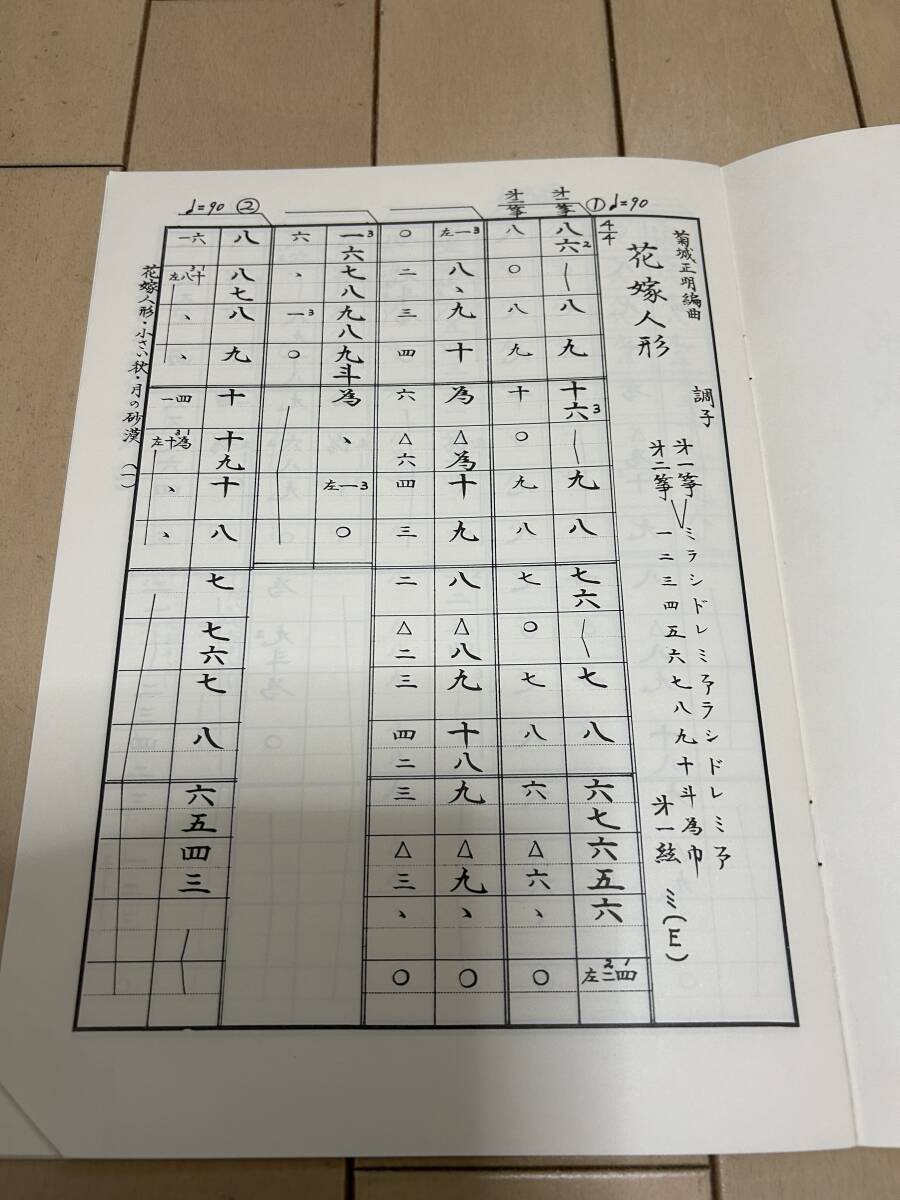 菊城正明編曲
花嫁人形
調子
第一箏
第二箏
ミラシドレミファラシドレミファ
一二三四五六七八九十斗為巾
第一絃 ミ(E)
① ♩=90
4/4
第一箏
八六2八九十六3九八七六七八六七六五六
第二箏
八○八九十○九八七○七八六△六、○
左一3八、九十為△為十九八△八九十八九△九、○
○二三四六△六四三二△二三四二三△三、○
一3六七八九八九斗為、左一3○
六、一3○
② ♩=90
八八七八九十十九十八七七六七八六五四三
一六左八十31、、一四左十為31、、
花嫁人形・小さい秋・月の砂漠 (一)